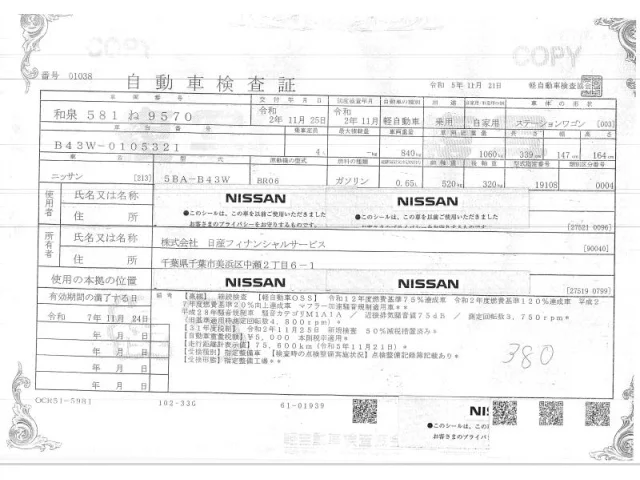 COPY
番号 01038
自動車検査証
令和 5年11月21日 軽自動車検査協会
車両番号 交付年月日 初度検査年月 自動車の種別 用途 自家用・事業用の別 車体の形状
和泉 581 ね 9570 令和 2年11月25日 令和 2年11月 軽自動車 乗用 自家用 ステーションワゴン [003]
車台番号 乗車定員 最大積載量 車両重量 車両総重量 長さ 幅 高さ
B43W-0105321 4人 -kg 840kg 1060kg 339cm 147cm 164cm
車名 型式 原動機の型式 燃料の種類 型式指定番号 類別区分番号
ニッサン [213] 5BA-B43W BR06 ガソリン 0.65L 520kg 320kg 19108 0004
使用者 氏名又は名称 NISSAN NISSAN
●このシールは、この車を以前ご使用いただきました
お客さまのプライバシーをお守りするものです。
●このシールは、この車を以前ご使用いただきました
お客さまのプライバシーをお守りするものです。
住所 [27521 0096]
所有者 氏名又は名称 株式会社 日産フィナンシャルサービス [90040]
住所 千葉県千葉市美浜区中瀬2丁目6-1
使用の本拠の位置 NISSAN NISSAN [27519 0799]
有効期間の満了する日 備考
令和 7年11月24日
年 月 日
年 月 日
年 月 日
年 月 日
【連絡】 継続検査 【軽自動車OSS】 令和12年度燃費基準75%達成車 令和2年度燃費基準120%達成車 平成2
7年度燃費基準20%向上達成車 マフラー加速騒音規制適用車**
平成28年騒音規制車 騒音カテゴリM1A1A / 近接排気騒音値75dB / 測定回転数3,750rpm*
【31年度税制】 令和2年11月25日 新規検査 50%減税措置済み*
【自動車重量税額】 ¥5,000 本則税率適用*
【走行距離計表示値】 75,600km (令和5年11月21日)*
【受検種別】 指定整備車 【検査時の点検整備実施状況】 点検整備記録簿記載あり*
【受検形態】 指定整備工場**
380
OCR51-5981 102-336 61-01939
NI
●このシールは、この車を以
お客さまのプライバ